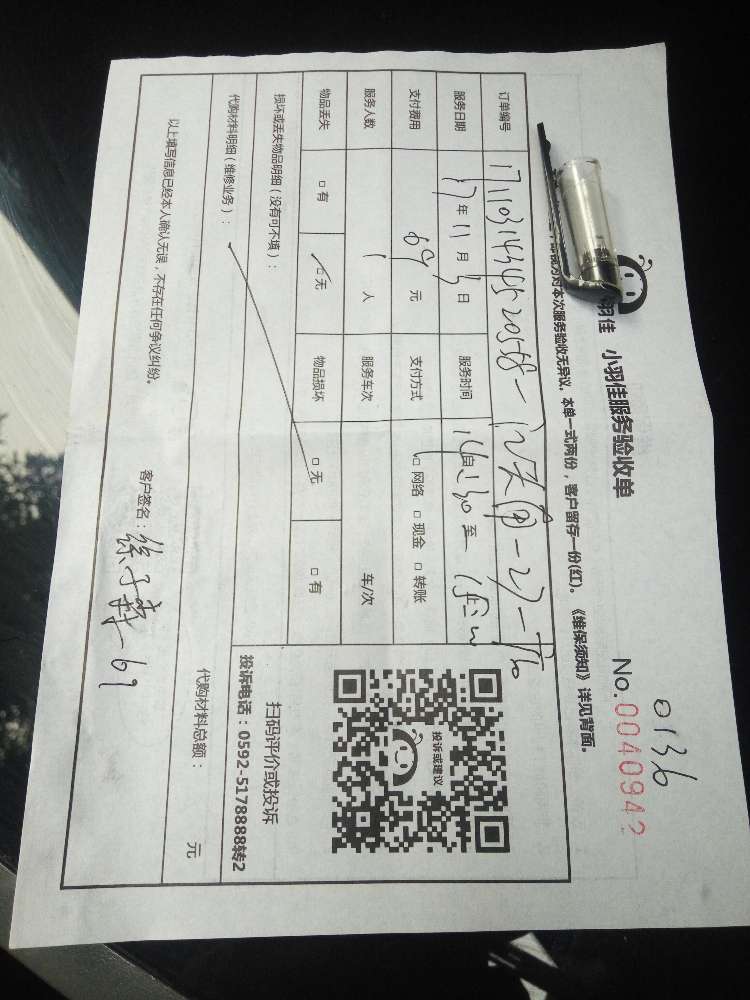 0136
羽佳 小羽佳服务验收单 No.0040942
对本次服务验收无异议。本单一式两份，客户留存一份(红)。《维保须知》详见背面。
订单编号
服务日期 17年11月3日 服务时间 自 至
支付费用 69元 支付方式 □网络 □现金 □转账
服务人数 1人 服务车次 车/次
物品丢失 □有 □无 物品损坏 □无 □有
损坏或丢失物品明细（没有可不填）：
代购材料明细（维修业务）：
代购材料总额： 元
投诉或建议
扫码评价或投诉
投诉电话：0592-5178888转2
以上填写信息已经本人确认无误，不存在任何争议纠纷。
客户签名：